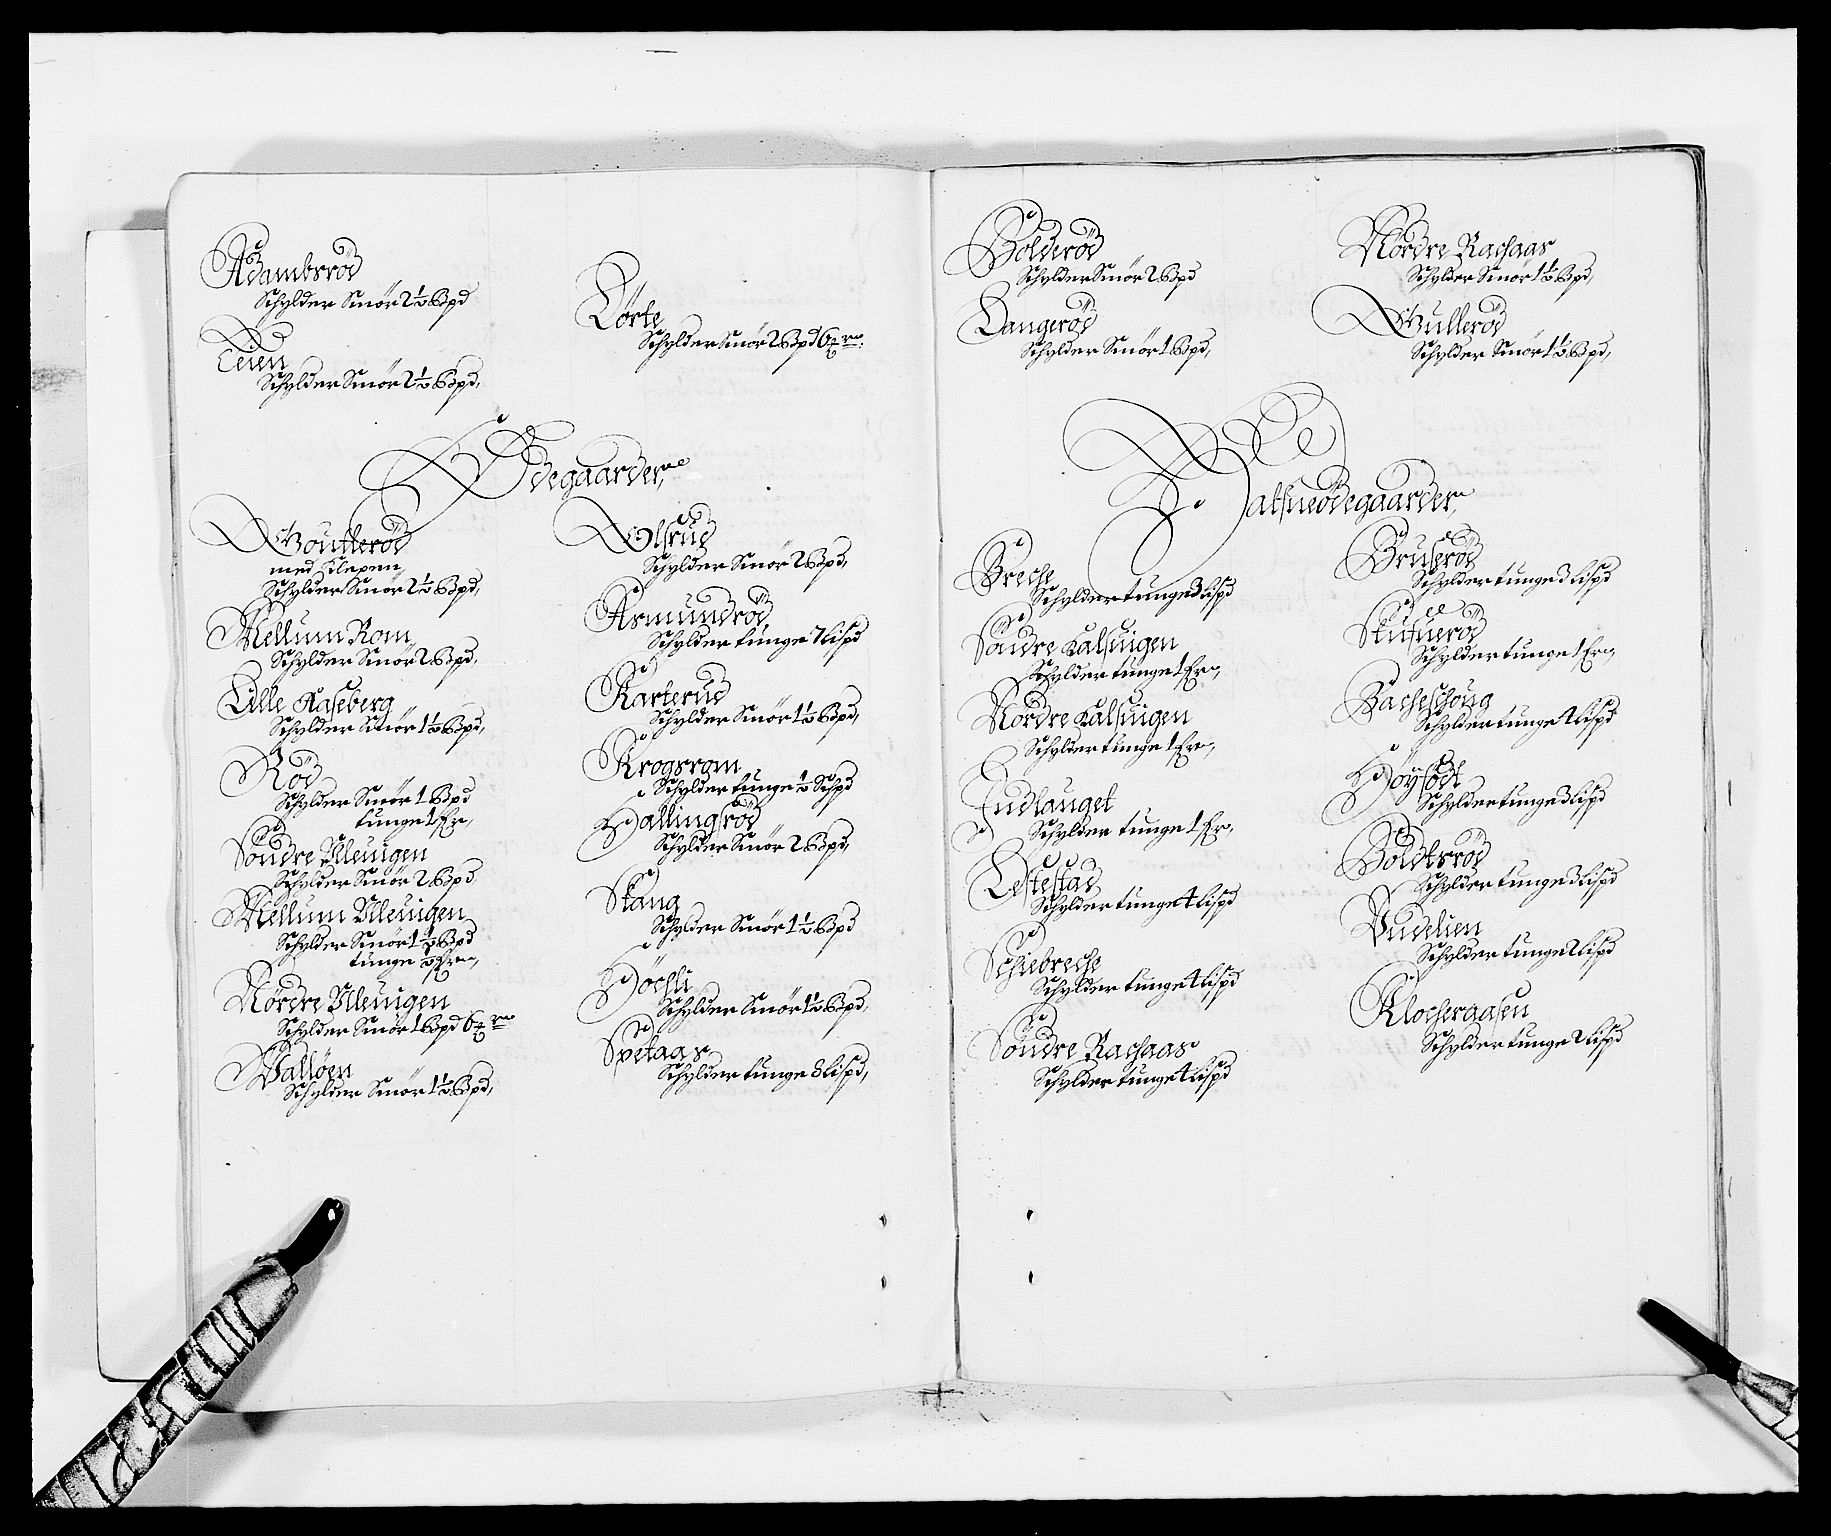 Adambsröd
Schylder Smör 2½ Bpd
Teien
Schylder Smör 2½ Bpd,
Lörte
Schylder Smör 2 Bpd 6
Ödegaarder,
Goulleröd
med Klepen,
Schylder Smör 2½ Bpd,
Mellum Rom
Schylder Smör 2 Bpd,
Lille Aaseberg
Schylder Smör 1½ Bpd,
Röd
Schylder Smör 1 Bpd
tunge 1 Fr,
Söndre Ulleuigen
Schylder Smör 2 Bpd
Mellum Ulleuigen
Schylder Smör 1½ Bpd
tunge ½ Fr,
Nördre Ulleuigen
Schylder Smör 1 Bpd 6
Walløen
Schylder Smör 1½ Bpd,
Olsrud
Schylder Smör 2 Bpd,
Asmundröd
Schylder tunge 7 Lispd
Karterud
Schylder Smör 1½ Bpd,
Krogsrom
Schylder tunge ½ Schpd
Hallingsröd
Schylder Smör 2 Bpd,
Stang
Schylder Smör 1½ Bpd
Höchli
Schylder Smör 1½ Bpd,
Spetaas
Schylder tunge 8 Lispd,
Bolderöd
Schylder Smör 2 Bpd
Langeröd
Schylder Smör 1 Bpd,
Nördre Rachaas
Schylder Smör 1½ Bpd,
Gulleröd
Schylder Smör 1½ Bpd,
Halfueödegaarder,
Breche
Schylder tunge 3 Lispd
Söndre Kalsuigen
Schylder tunge 1 Fr,
Nördre Kalsuigen
Schylder tunge 1 Fr,
Indlauget
Schylder tunge 1 Fr,
Lestestad
Schylder tunge 4 Lispd
Schiebreche
Schylder tunge 4 Lispd
Söndre Rachaas
Schylder tunge 4 Lispd
Bruseröd
Schylder tunge 3 Lispd
Stufueröd
Schylder tunge 1 Fr,
Bacheschoug
Schylder tunge 2 Lispd
Höysödt
Schylder tunge 3 Lispd
Boldtsröd
Schylder tunge 3 Lispd
Pudelien
Schylder tunge 2 Lispd
Klocheraasen
Schylder tunge 2 Lispd